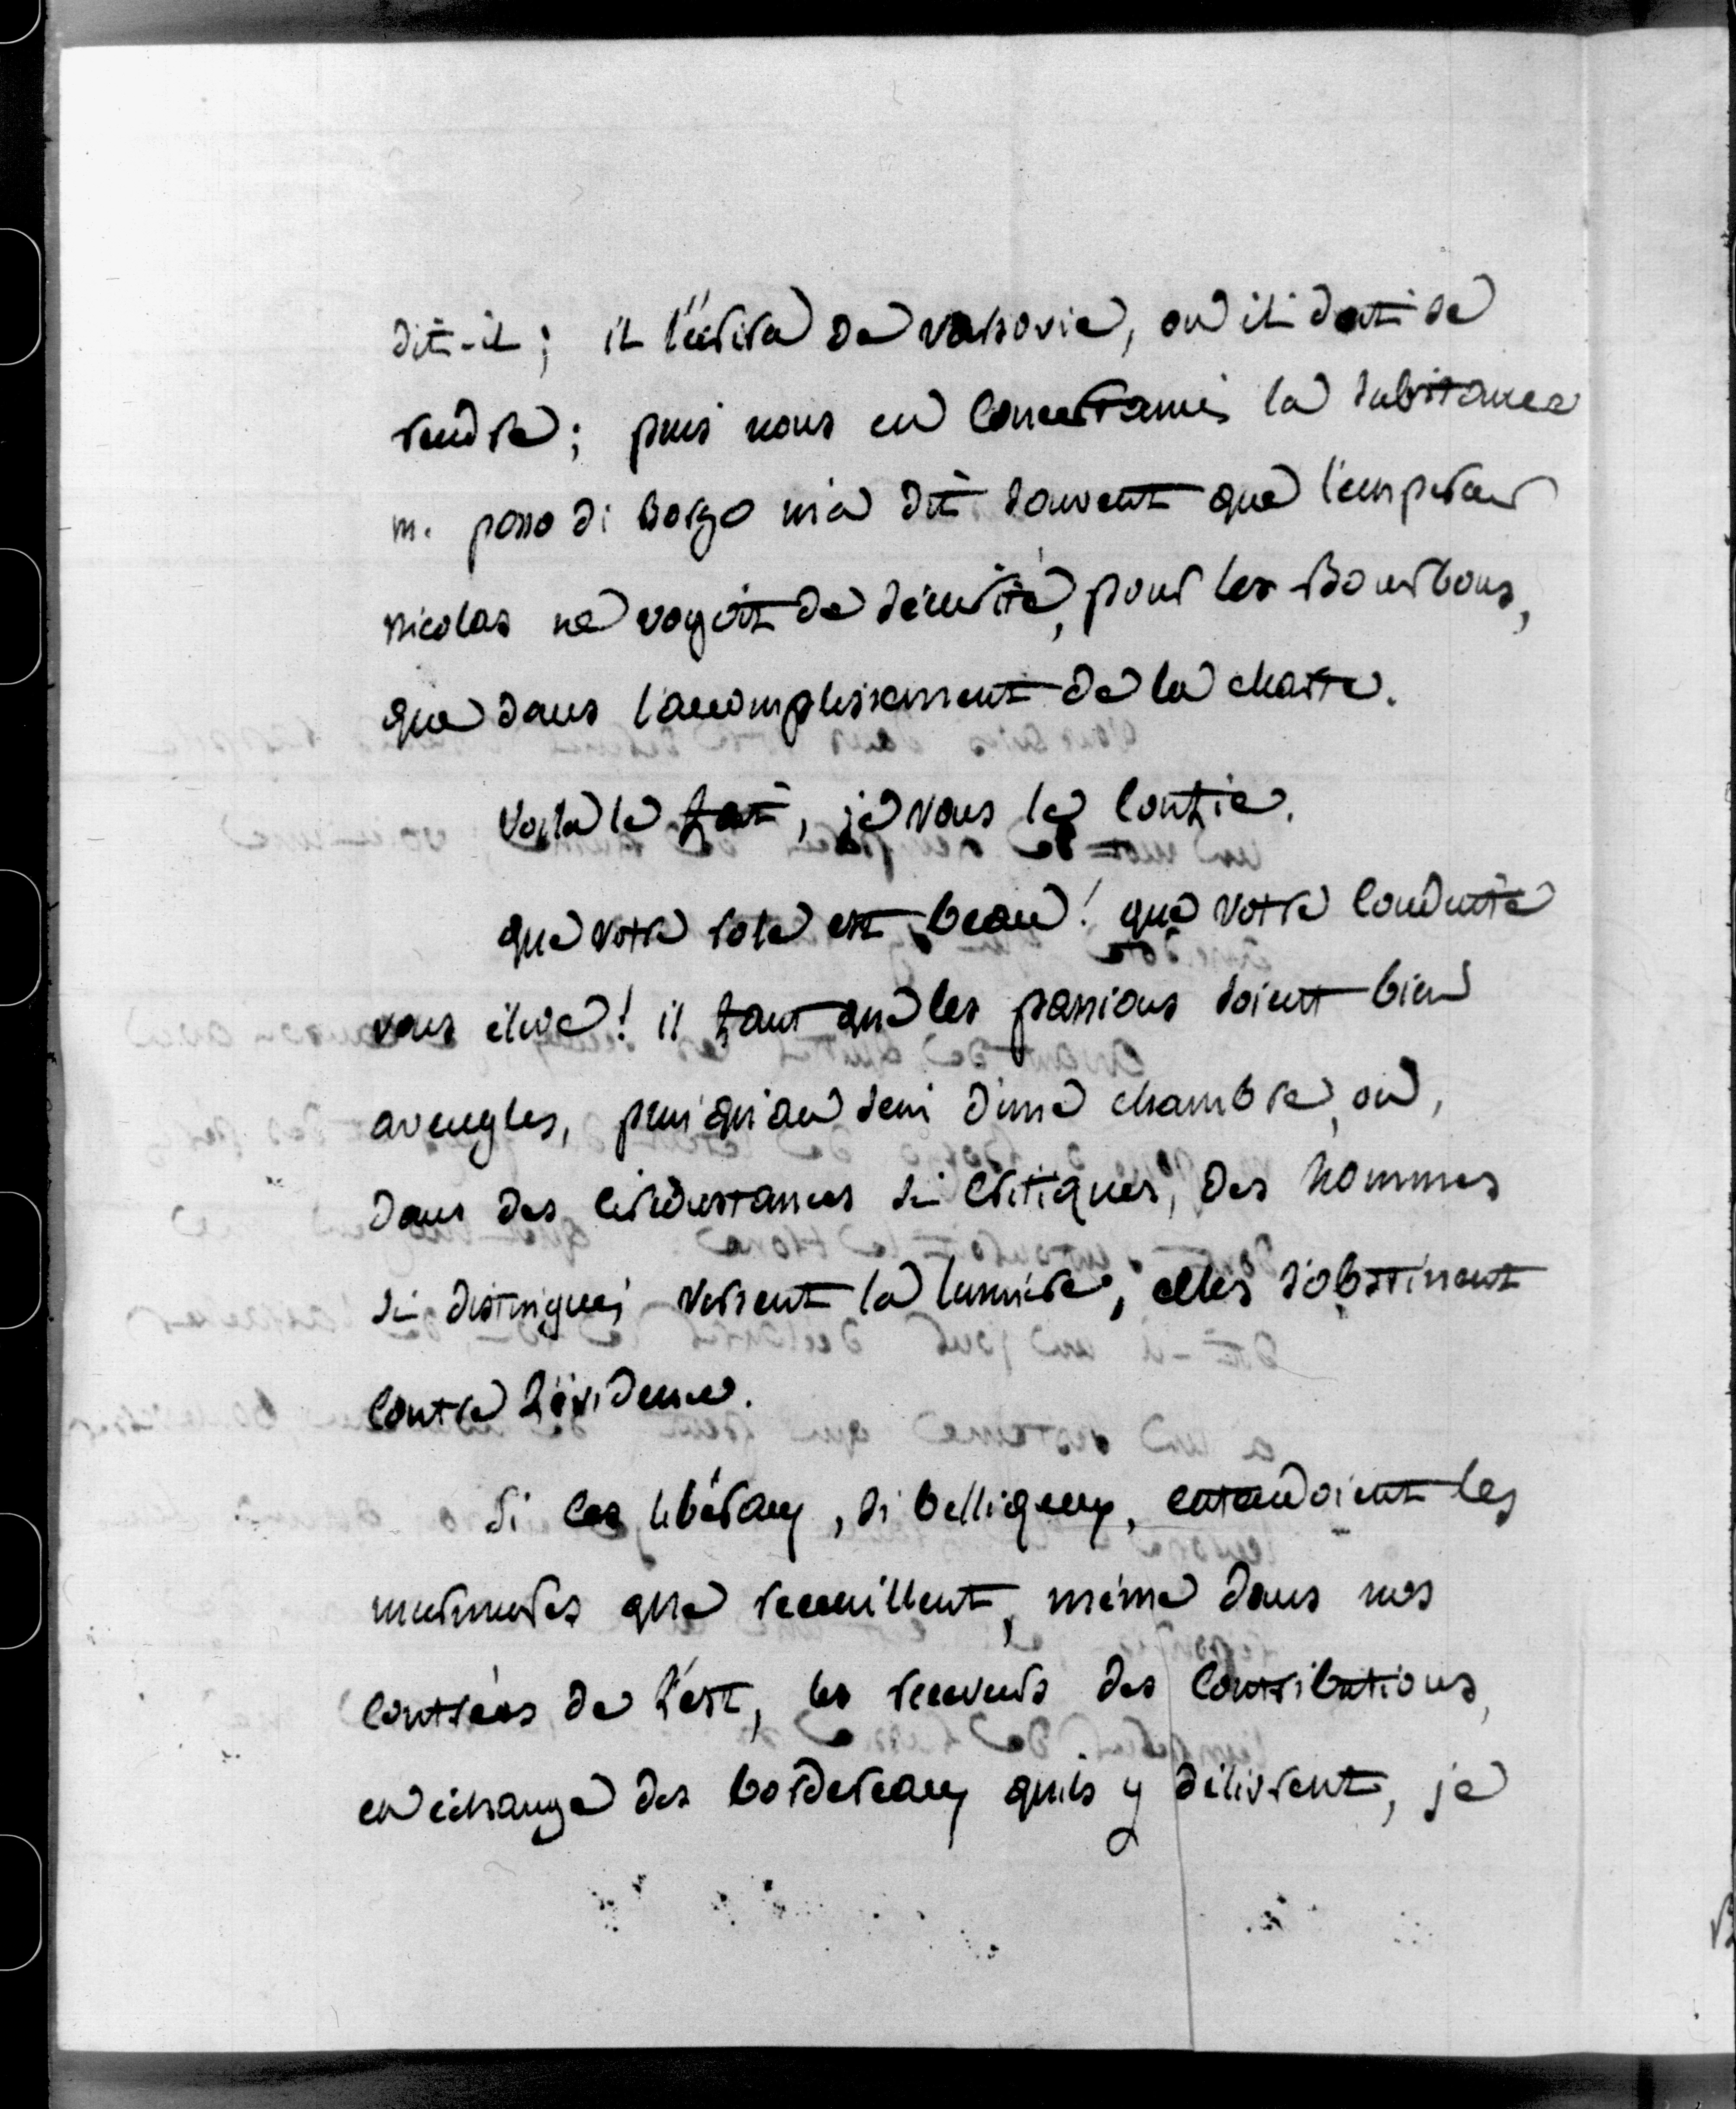 dit-il; il l'écrira de varsovie, où il doit se
rendre; puis nous en concertames la substance
m. pozzo di Borgo m'a dit souvent que l'empereur
nicolas ne voyoit de sécurité, pour les Bourbons,
que dans l'accomplissement de la charte.
voila le fait, je vous le confie.
que votre role est beau! que votre conduite
vous élève! il faut que les passions soient bien
aveugles, puisqu'au sein d'une chambre, où,
dans des circonstances si critiques, des hommes
si distingués versent la lumière, elles s'obstinent
contre l'évidence.
Si les libéraux, si belliqueux, entendoient les
murmures que recueillent, même dans nos
contrées de l'est, les receveurs des contributions,
en échange des bordereaux quils y délivrent, je